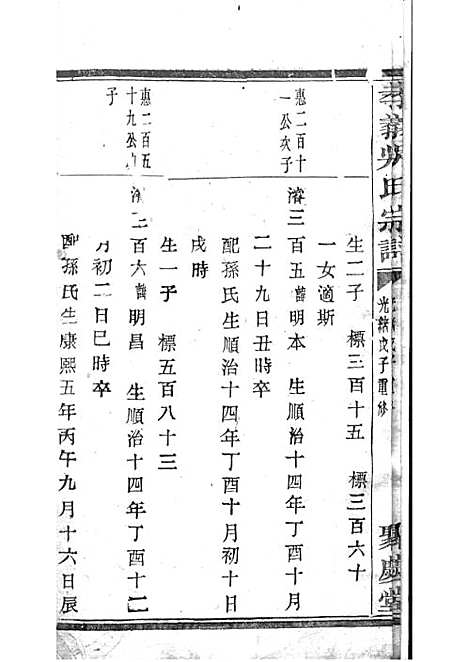 孝義吳氏宗譜
光緒戊子重修
聚慶堂
生二子 標三百十五 標三百六十
一女適斯
惠二百十
一公次子
濬三百五諱明本 生順治十四年丁酉十月
二十九日丑時卒
配孫氏生順治十四年丁酉十月初十日
戌時
生一子 標五百八十三
惠二百五
十九公
子
三百六諱明昌 生順治十四年丁酉十二
月初二日巳時卒
配孫氏生康熙五年丙午九月十六日辰